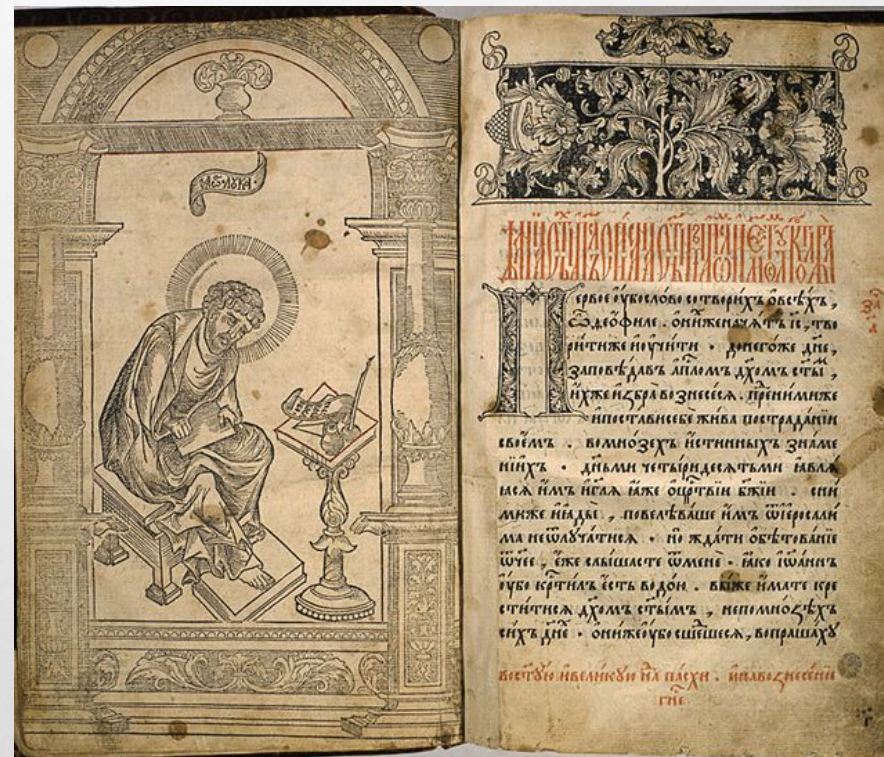 лꙋка ·
Первое ᲂу҆бо слово сотвори́хъ ѻ҆ всѣ́хъ ,
ѽ ѳео́филе . ѻ҆ ни́хже нача́тъ і҃с , тво
ри́ти же и҆ ᲂу҆чи́ти · до него́же дн҃е ,
заповѣ́давъ а҆пⷭ҇ломъ дх҃омъ ст҃ы́ ,
и҆́хже и҆збра̀ вознесе́сѧ . пре́ни́миже
и҆ поста́ви себѐ жи́ва по страда́нїи
свое́мъ . во мно́зехъ и҆́стинныхъ зна́ме
нїихъ · дн҃ьми четы́ридесѧтьми ꙗ҆влѧ
ꙗсѧ и҆̀мъ и҆ гл҃ѧ ꙗ҆̀же ѻ҆ црⷭ҇твїи бж҃їи . с ни
ми же и҆ ꙗ҆ды̀ , повелѣ́ваше и҆̀мъ ѿ і҆еросали́
ма не ѿлꙋча́тисѧ · но жда́ти ѻ҆бѣтова́нїе
ѿч҃ее , є҆́же слы́шасте ѿ менѐ · ꙗ҆́ко і҆ѡа́ннъ
ᲂу҆́бо крⷭ҇ти́лъ є҆́сть водо́ю . вы́ же и҆́мате кре
сти́тисѧ дх҃омъ ст҃ы́мъ , не по мно́ѕѣхъ
си́хъ дн҃е · ѻ҆ни́же ᲂу҆бо сше́дшесѧ , вопраша́хꙋ
во ст҃ꙋ́ю и҆ вели́кꙋю нⷣ҇лю па́схи . и҆ на вознесе́нїе
гн҃е